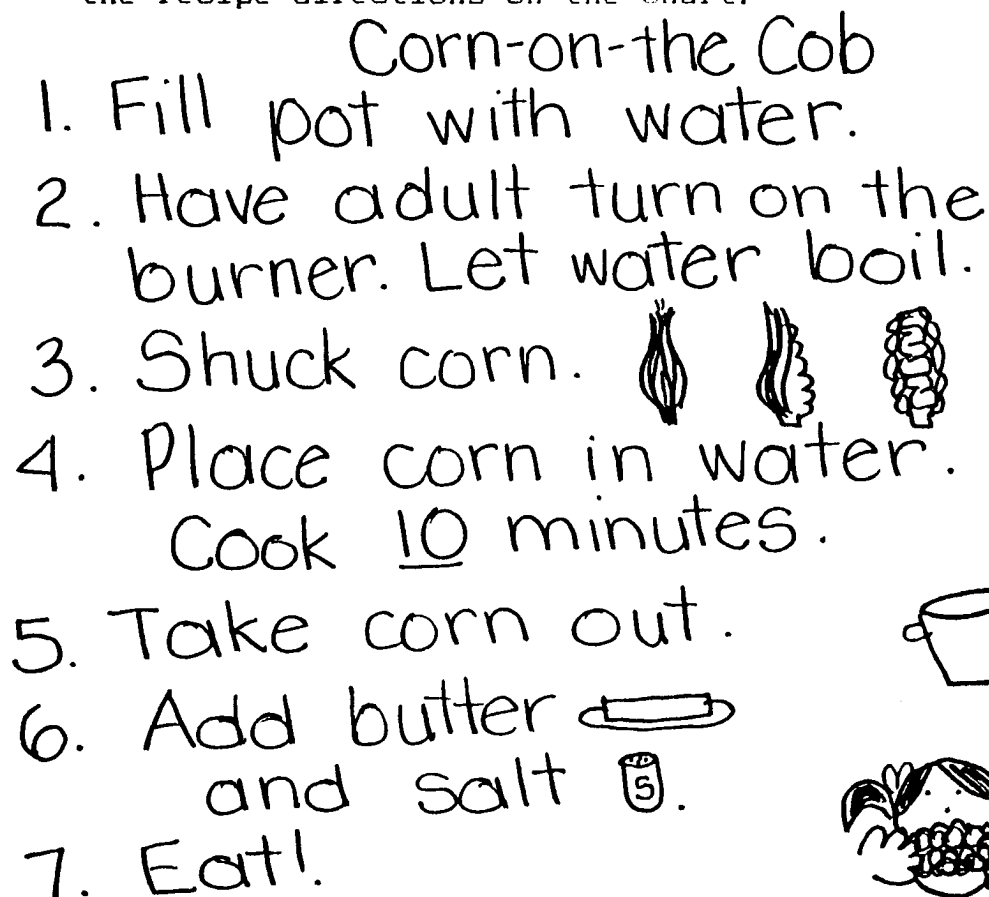 the recipe directions on the chart.
Corn-on-the Cob
1. Fill pot with water.
2. Have adult turn on the
burner. Let water boil.
3. Shuck corn.
4. Place corn in water.
Cook 10 minutes.
5. Take corn out.
6. Add butter
and salt S.
7. Eat!